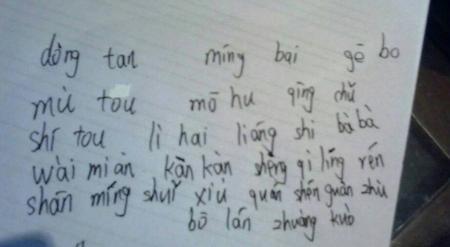 dòng tan míng bai gē bo
mù tou mō hu qīng chǔ
shí tou lì hai liáng shi bà bà
wài miàn kàn kàn shēng qì líng rén
shān míng shuǐ xiù quán shén guàn zhù
bō lán zhuàng kuò